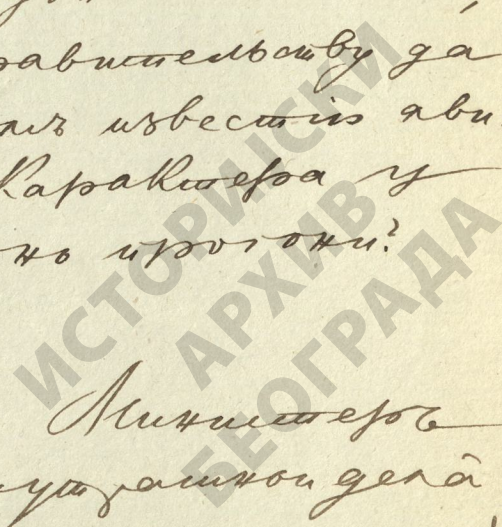 равителству да
алъ известія яви
Карактера у
но прогони?
Министеръ
утрашнои дела
ИСТОРИЈСКИ
АРХИВ
БЕОГРАДА